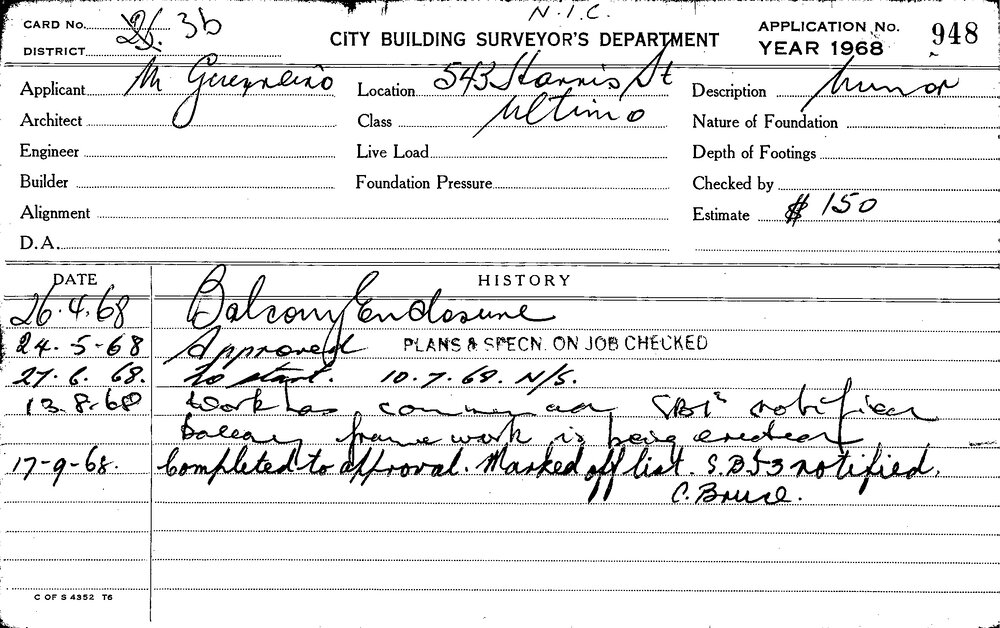 N.I.C.
CARD No. 3b
CITY BUILDING SURVEYOR'S DEPARTMENT
APPLICATION No. 948
DISTRICT
YEAR 1968
Applicant M
Location 543 Harris St
Description Minor
Architect
Class Ultimo
Nature of Foundation
Engineer
Live Load
Depth of Footings
Builder
Foundation Pressure
Checked by
Alignment
Estimate $ 150
D.A.
DATE
HISTORY
26.4.68 Balcony Enclosure
24.5-68 Approved PLANS & SPECN. ON JOB CHECKED
27.6.68. To start. 10.7.68. N/S.
13.8.68 Work has notified
balcony frame work is being erected
17-9-68. Completed to approval. Marked off list. notified.
C. Bruce.
C OF S 4352 T6